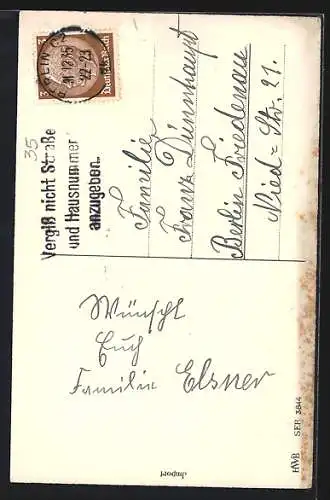 BERLIN
31.12.35
22-23
Deutsches Reich
3
35
Vergiß nicht Straße
und Hausnummer
anzugeben.
Familie
Franz Dünnhaupt
Berlin Friedenau
Ried-Str. 21.
Wünscht
Euch
Familie Elsner
Import
HWB SER 3844